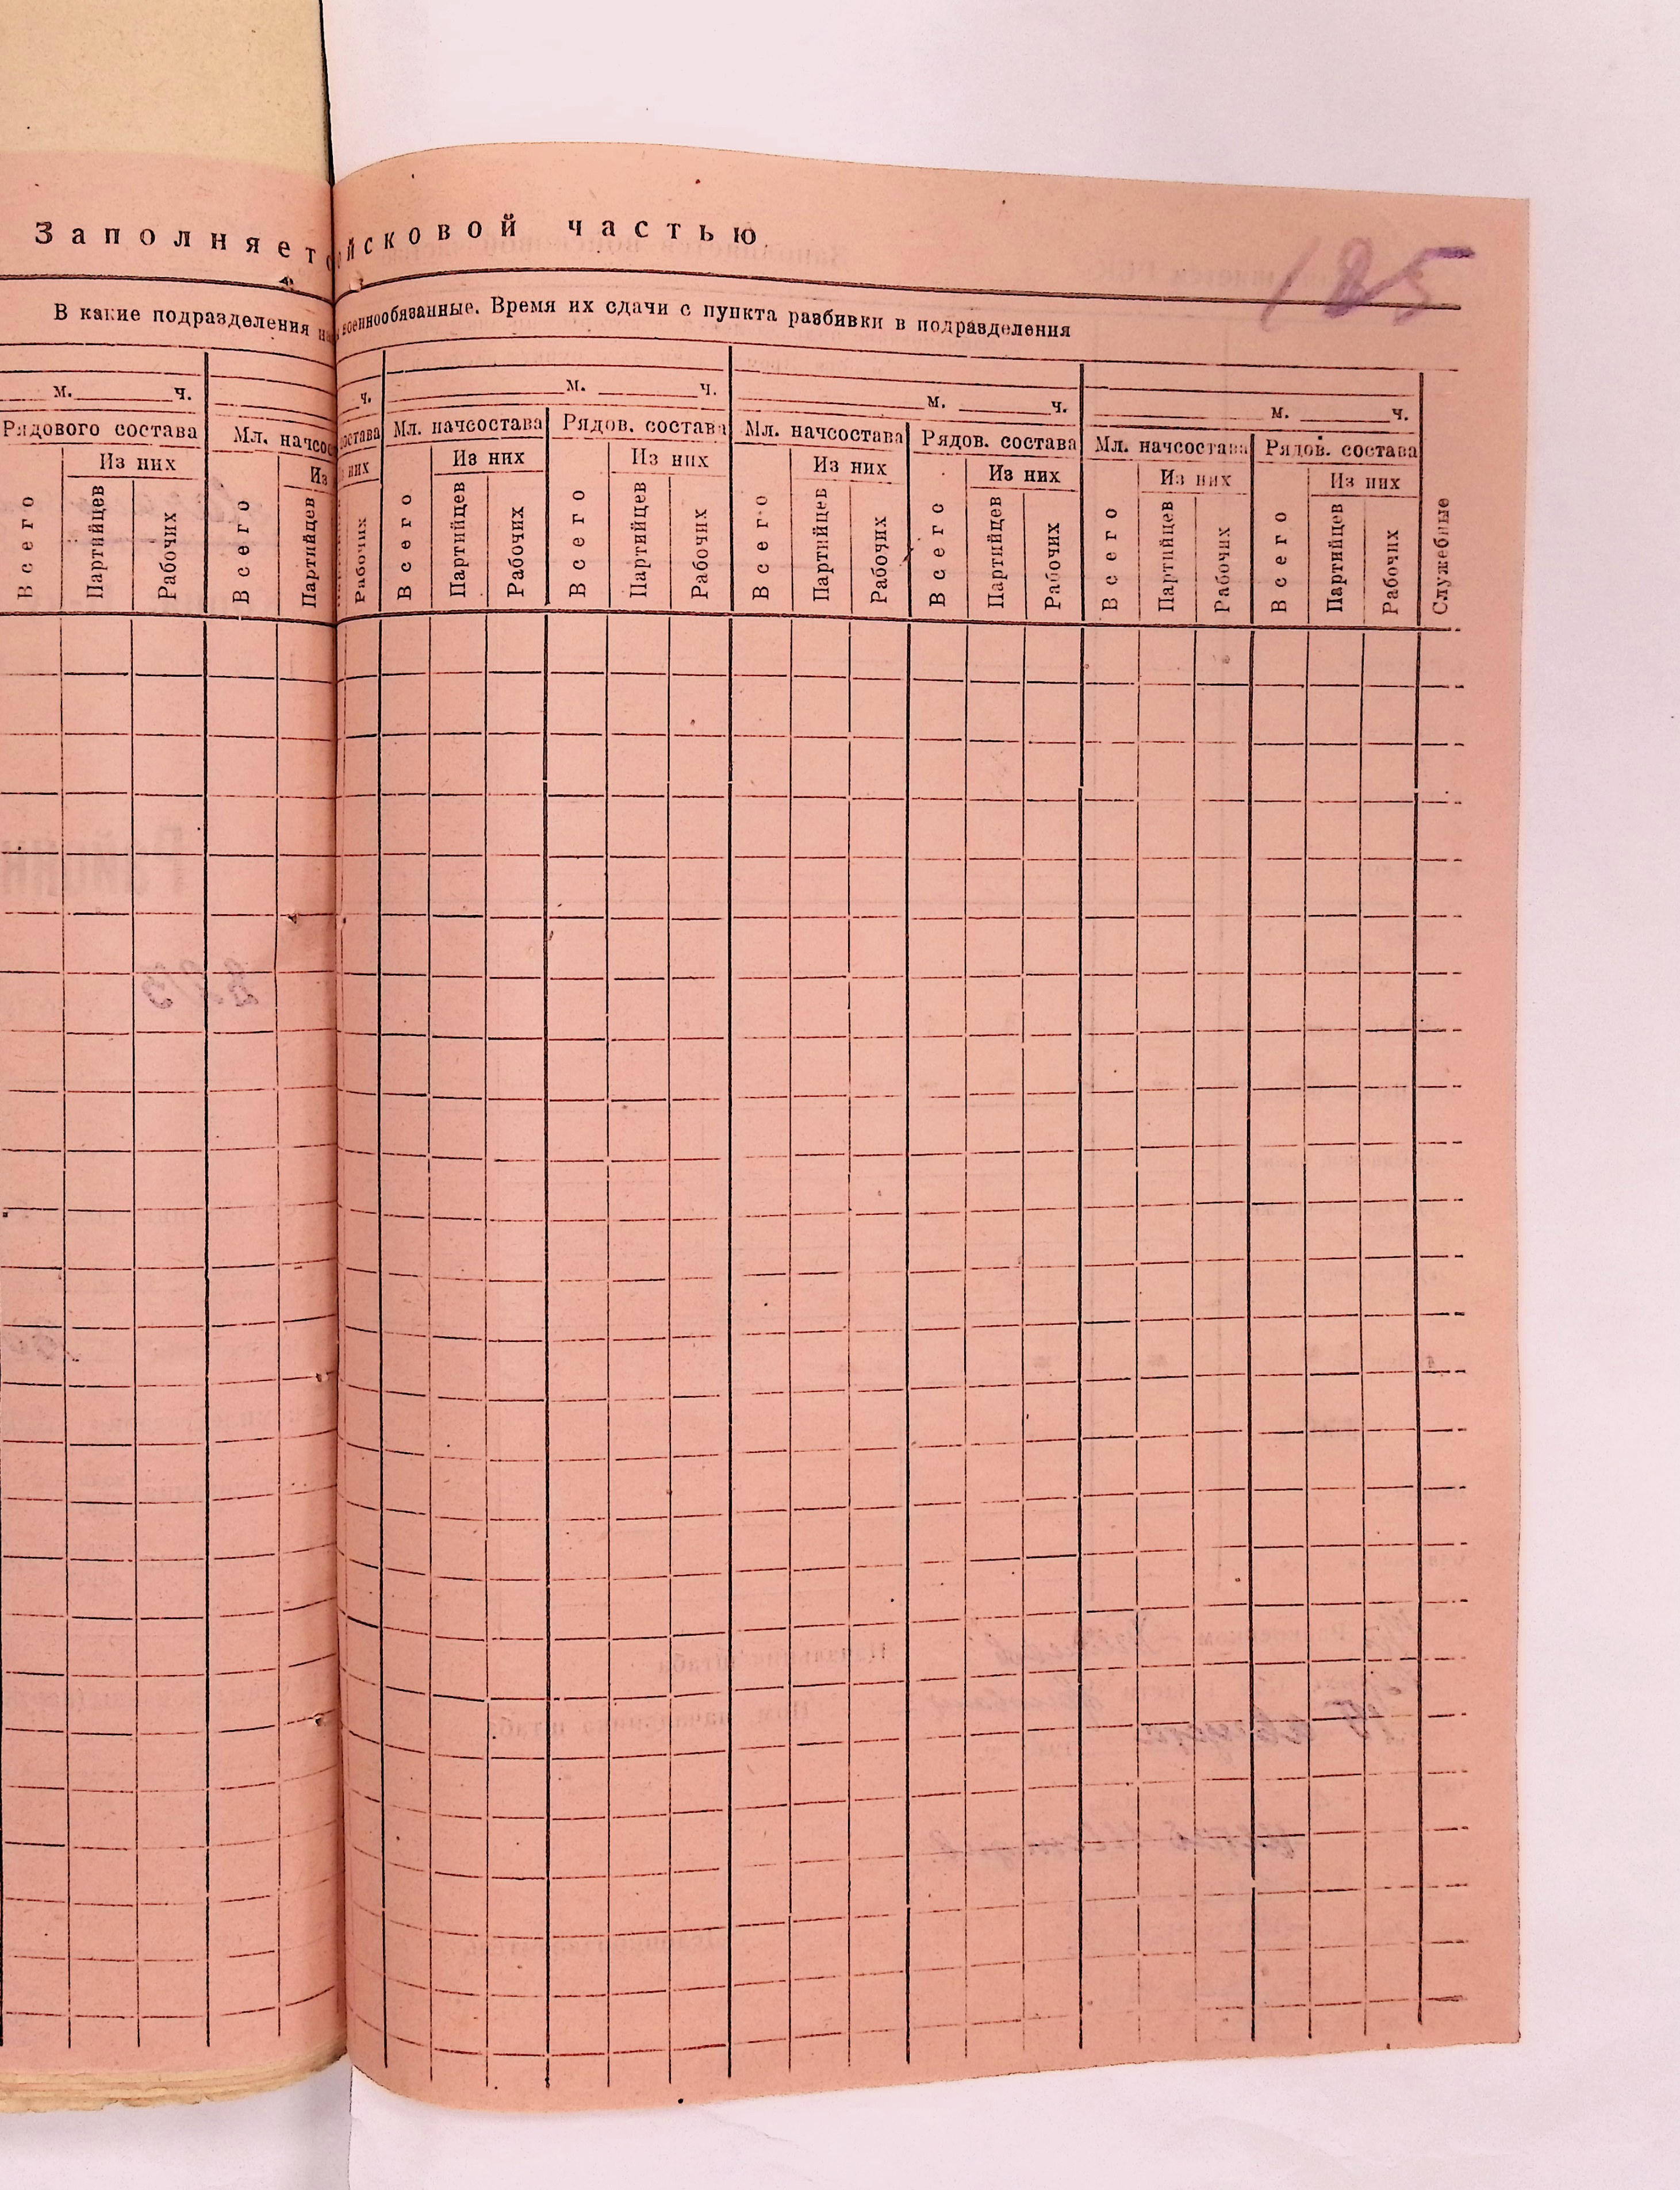 185
Заполняет ойсковой частью
В какие подразделения на военнообязанные. Время их сдачи с пункта разбивки в подразделения
м. ч. ч. м. ч. м. ч. м. ч.
Рядового состава Мл. начсос состава Мл. начсостава Рядов. состава Мл. начсостава Рядов. состава Мл. начсостава Рядов. состава
Из них Из них Из них Из них Из них Из них Из них Из них
Всего Партийцев Рабочих Всего Партийцев Рабочих Всего Партийцев Рабочих Всего Партийцев Рабочих Всего Партийцев Рабочих Всего Партийцев Рабочих Всего Партийцев Рабочих Всего Партийцев Рабочих Служебные